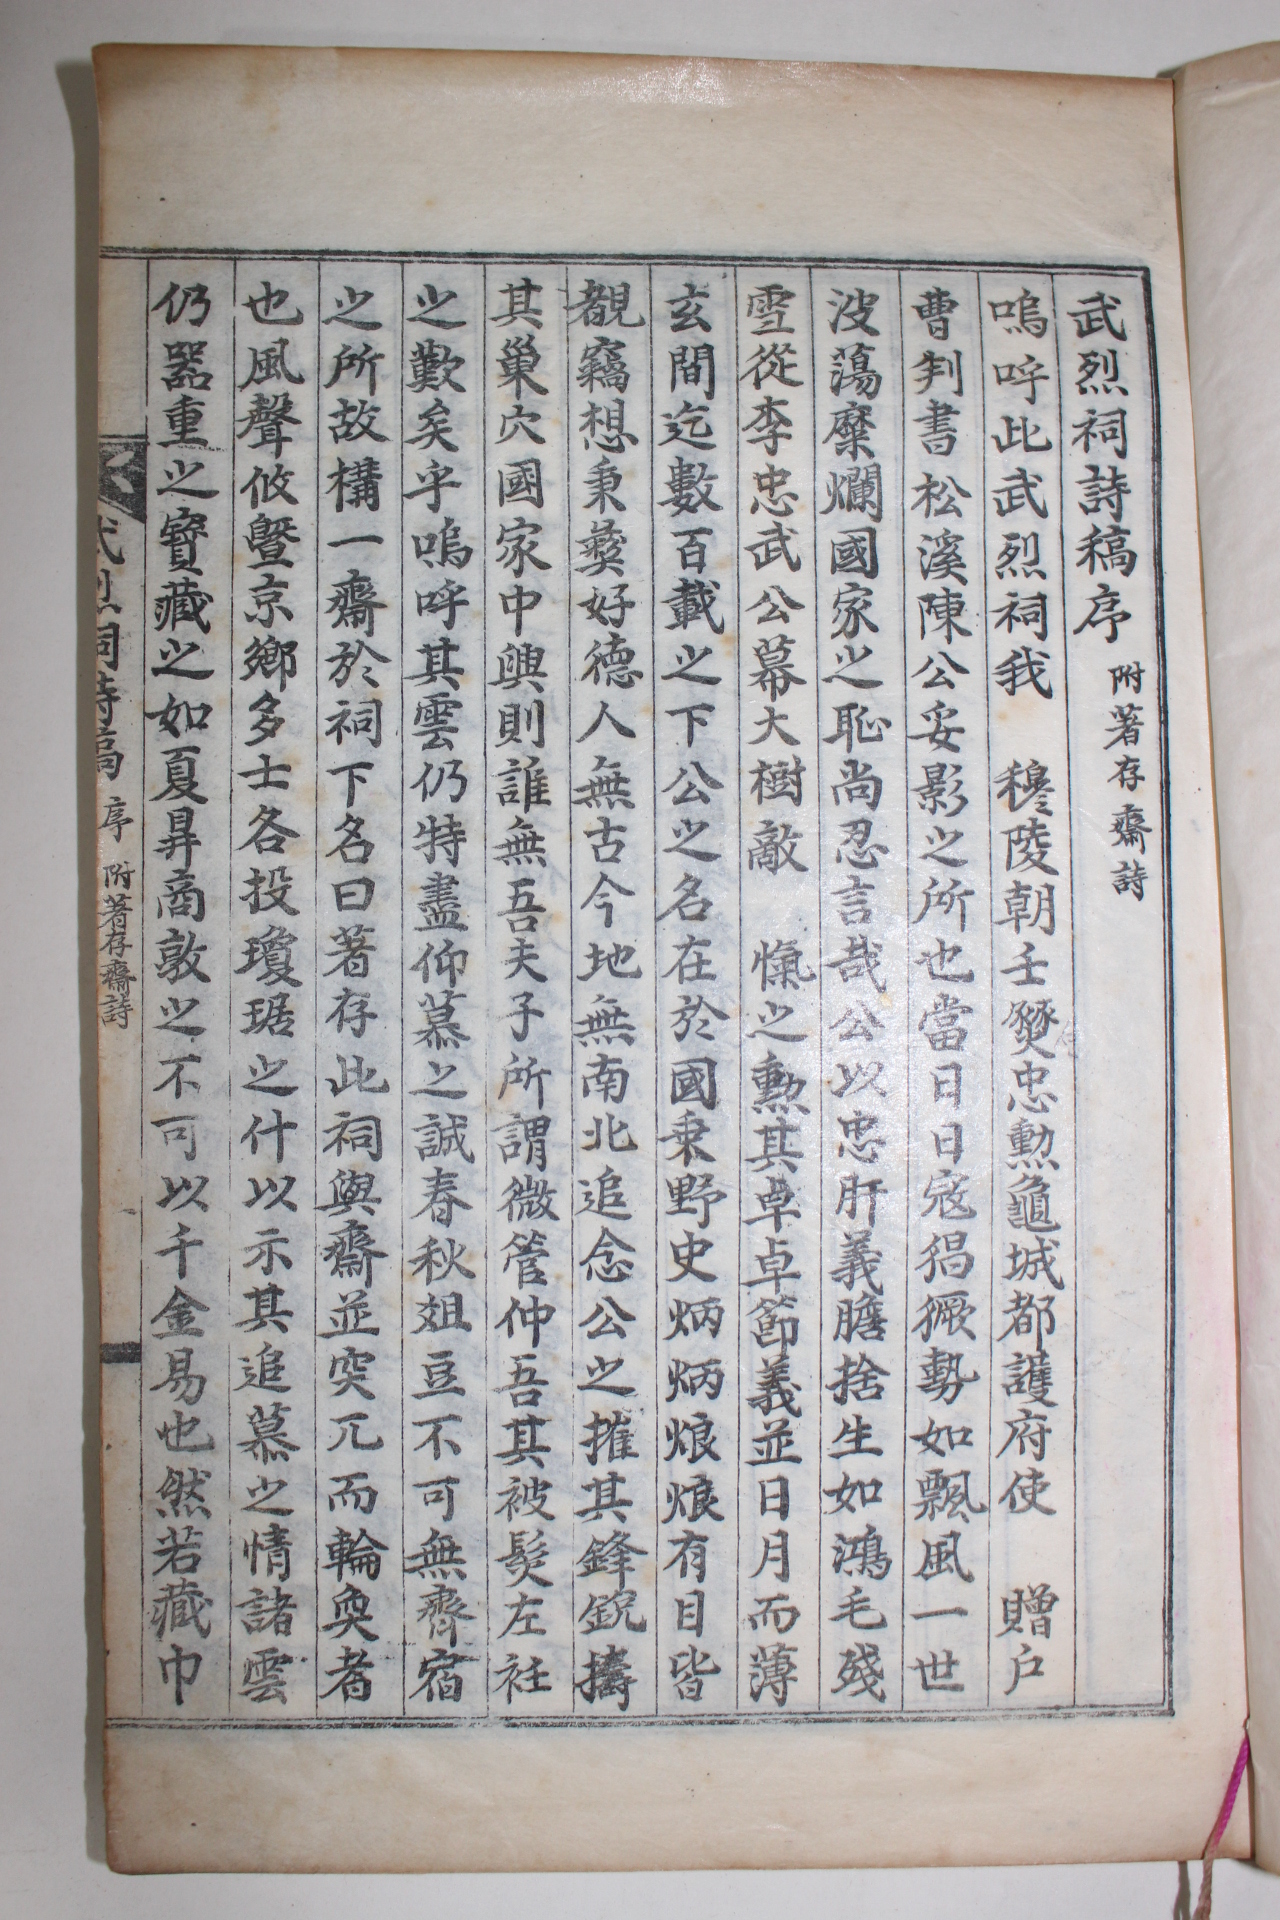 武烈祠詩稿序 附著存齋詩
嗚呼此武烈祠我 穆陵朝壬燹忠勳龜城都護府使 贈戶
曹判書松溪陳公妥影之所也當日日寇猖獗勢如飄風一世
波蕩糜爛國家之恥尚忍言哉公以忠肝義膽捨生如鴻毛殘
雪從李忠武公幕大樹敵 愾之勳其卓卓節義並日月而薄
玄間迄數百載之下公之名在於國乘野史炳炳烺烺有目皆
覩竊想秉彜好德人無古今地無南北追念公之摧其鋒銳擣
其巢穴國家中興則誰無吾夫子所謂微管仲吾其被髮左衽
之歎矣乎嗚呼其雲仍特盡仰慕之誠春秋俎豆不可無齊宿
之所故構一齋於祠下名曰著存此祠與齋並突兀而輪奐者
也風聲攸曁京鄉多士各投瓊琚之什以示其追慕之情諸雲
仍器重之寶藏之如夏鼎商敦之不可以千金易也然若藏巾
武烈祠詩稿 序 附著存齋詩